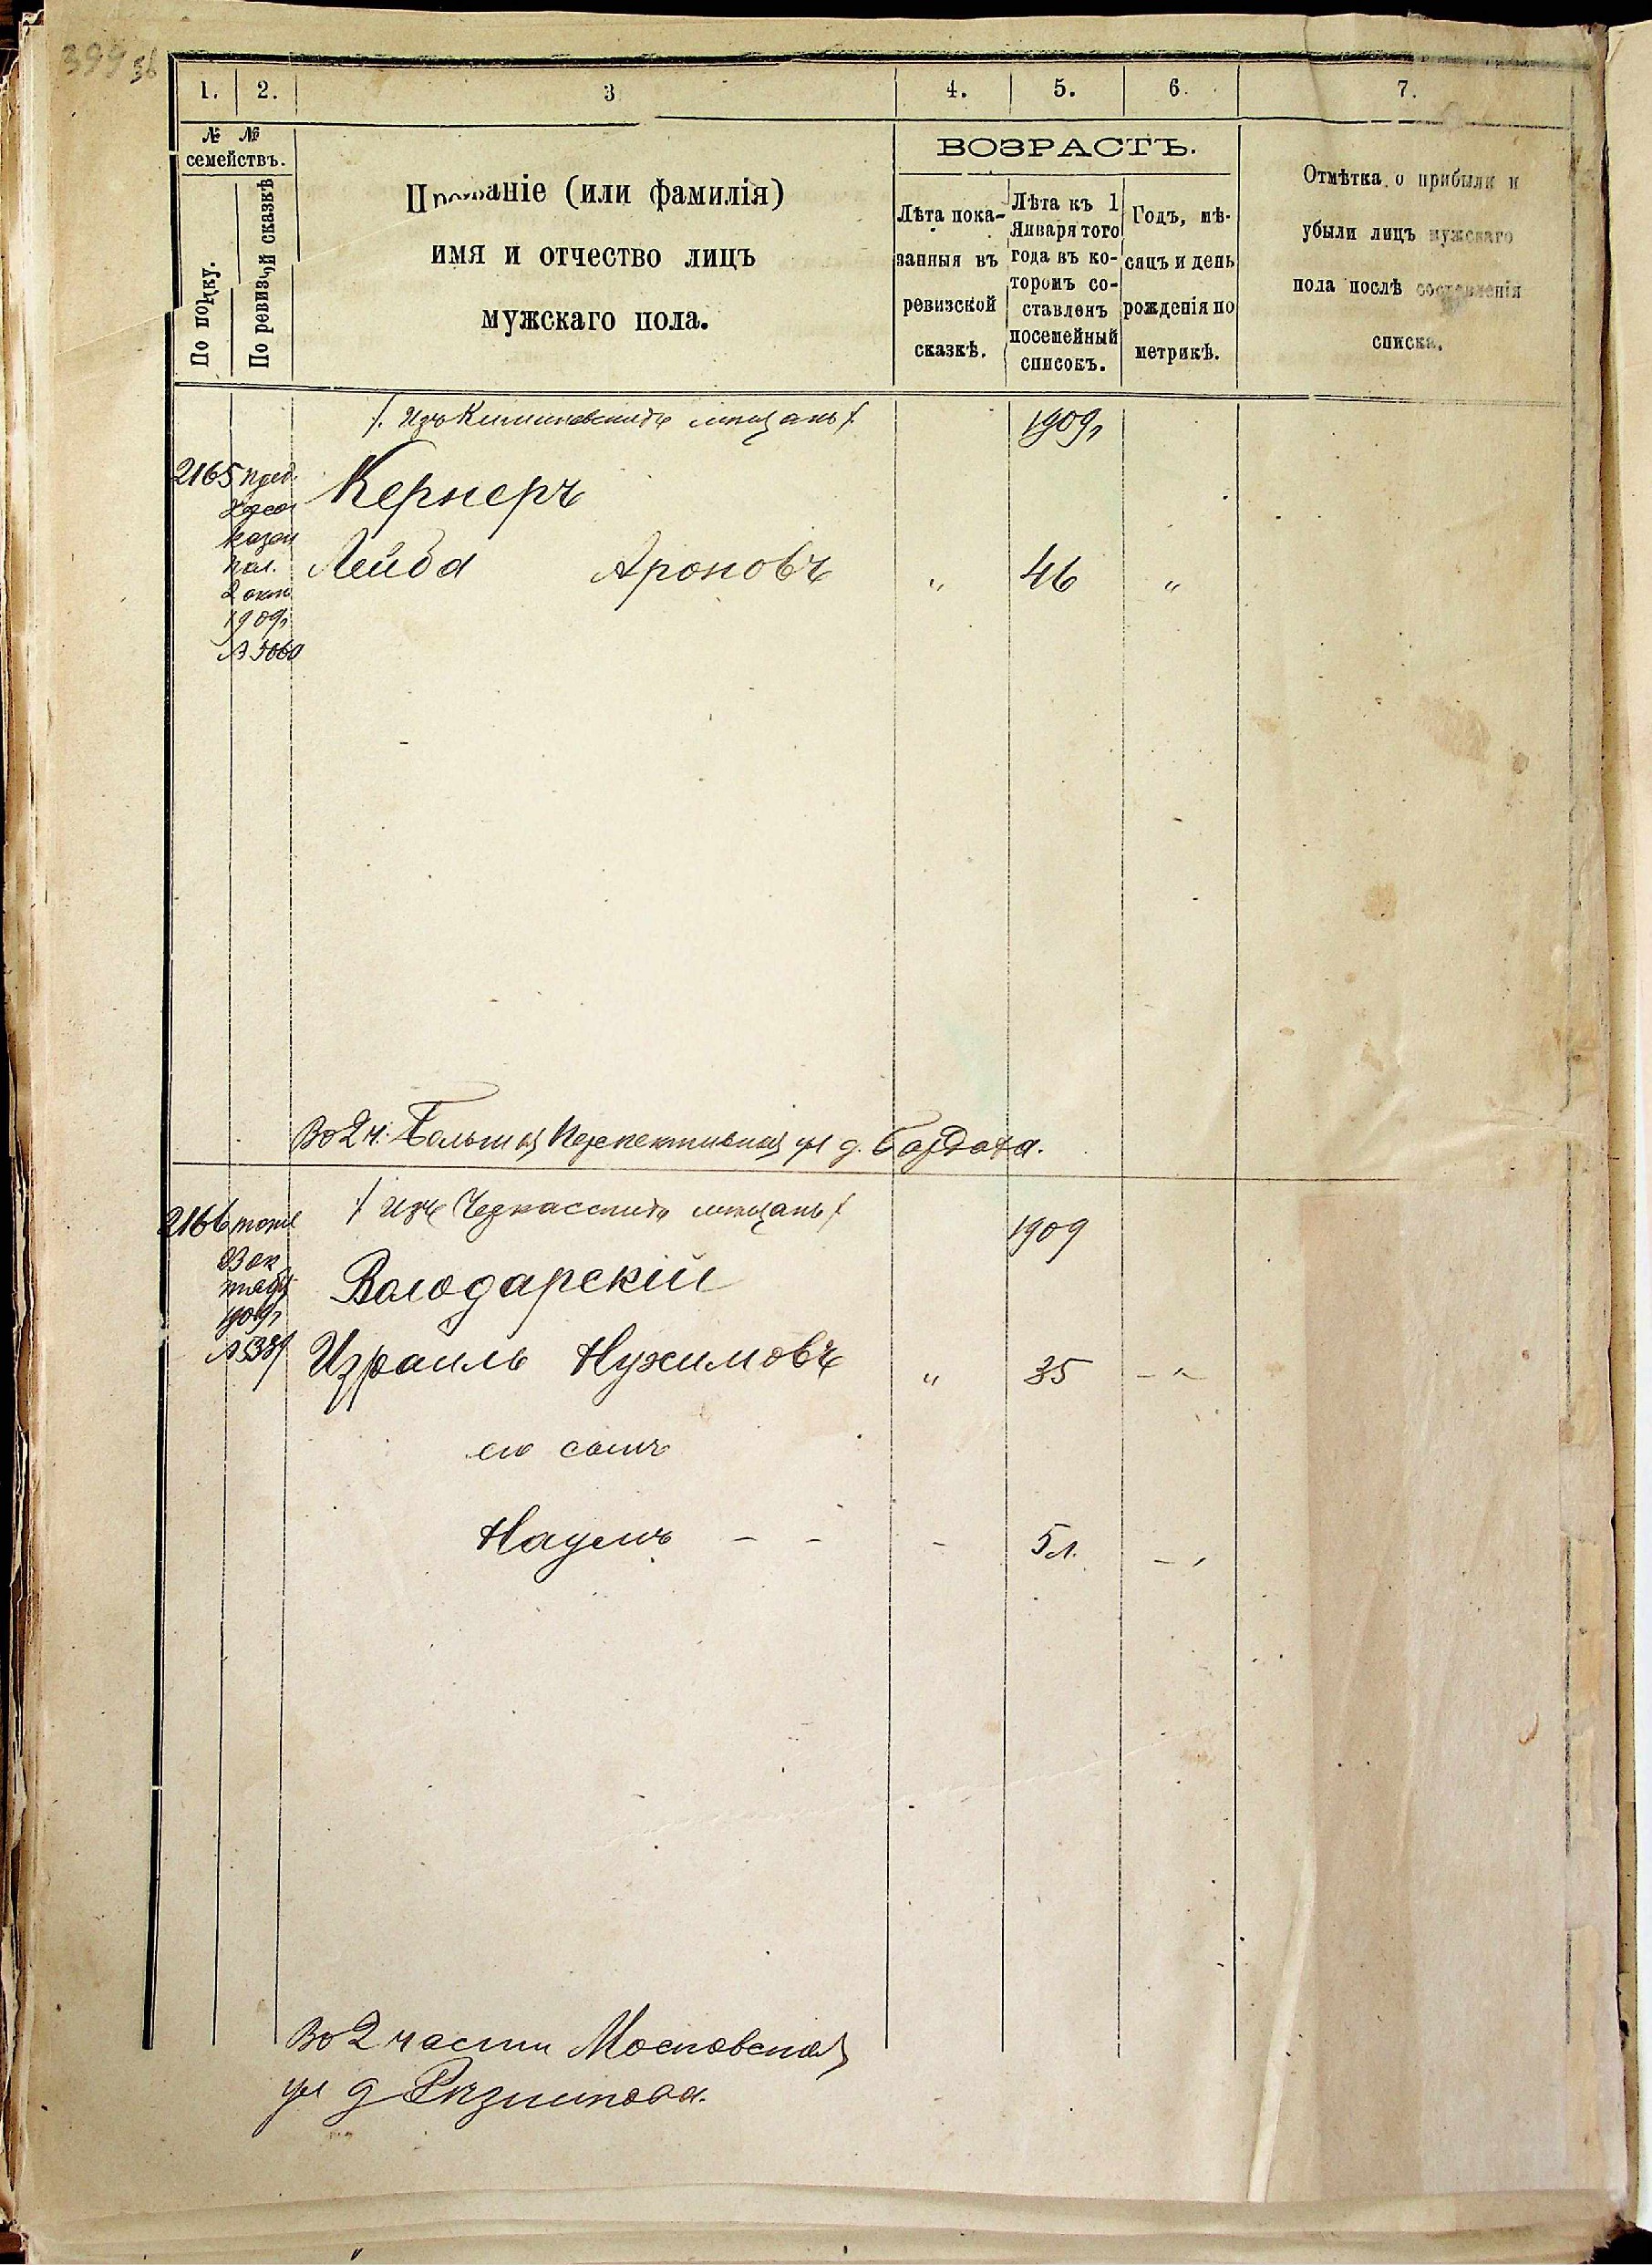 399 56
1. 2. 3 4. 5. 6. 7.
№ №
семействъ.
По порядку.
По ревизской сказкѣ
Прозваніе (или фамилія)
имя и отчество лицъ
мужскаго пола.
ВОЗРАСТЪ.
Лѣта пока-
занныя въ
ревизской
сказкѣ.
Лѣта къ 1
Января того
года въ ко-
торомъ со-
ставленъ
посемейный
списокъ.
Годъ, мѣ-
сяцъ и день
рожденія по
метрикѣ.
Отмѣтка о прибыли и
убыли лицъ мужскаго
пола послѣ составленія
списка.
/. Изъ Кишиневскихъ мѣщанъ /. 1909г
2165 пред.
Херсон
казен
пал.
2 окт
1909г
№ 5060
Кернеръ
Лейба Ароновъ " 46 "
Во 2 ч. Большая Перспективная ул д.
2166 тоже
окт
1909г
/ Изъ Черкасскихъ мѣщанъ / 1909
Володарскій
Израиль Нухимовъ " 35 - "
его сынъ
Наумъ - - - 5 л. - "
Во 2 части Московская
ул д Рѣзникова.